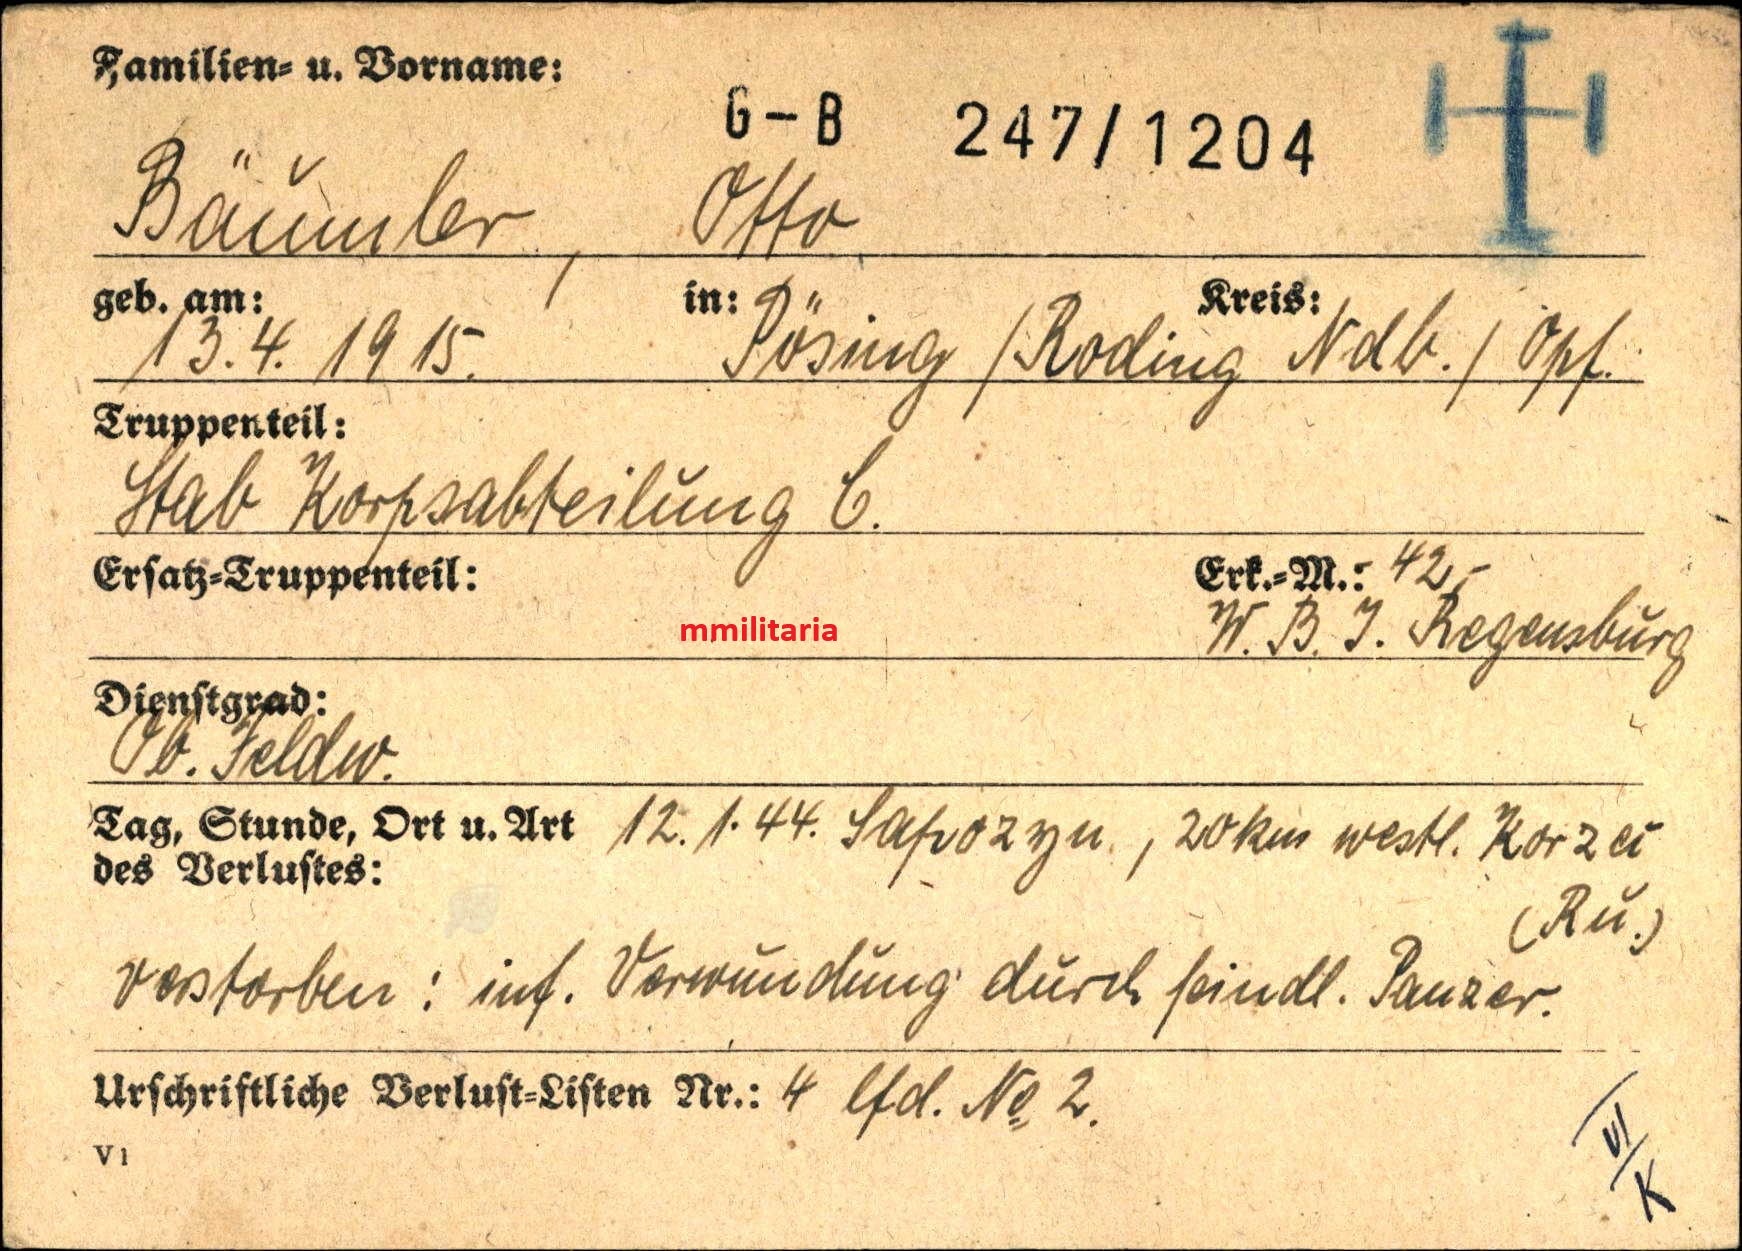 Familien- u. Vorname:
G-B 247/1204
Bäumler, Otto
geb. am: in: Kreis:
13.4.1915. Pösing /Roding Ndb./Opf.
Truppenteil:
Stab Korpsabteilung C.
Ersatz-Truppenteil: Erk.-M.: 42,-
mmilitaria W. B. I. Regensburg
Dienstgrad:
Ob. Feldw.
Tag, Stunde, Ort u. Art 12.1.44. Sapozyn., 20 km westl. Korzec
des Verlustes: (Ru.)
verstorben: inf. Verwundung durch feindl. Panzer.
Urschriftliche Verlust-Listen Nr.: 4 lfd. No 2.
V1
VI/K